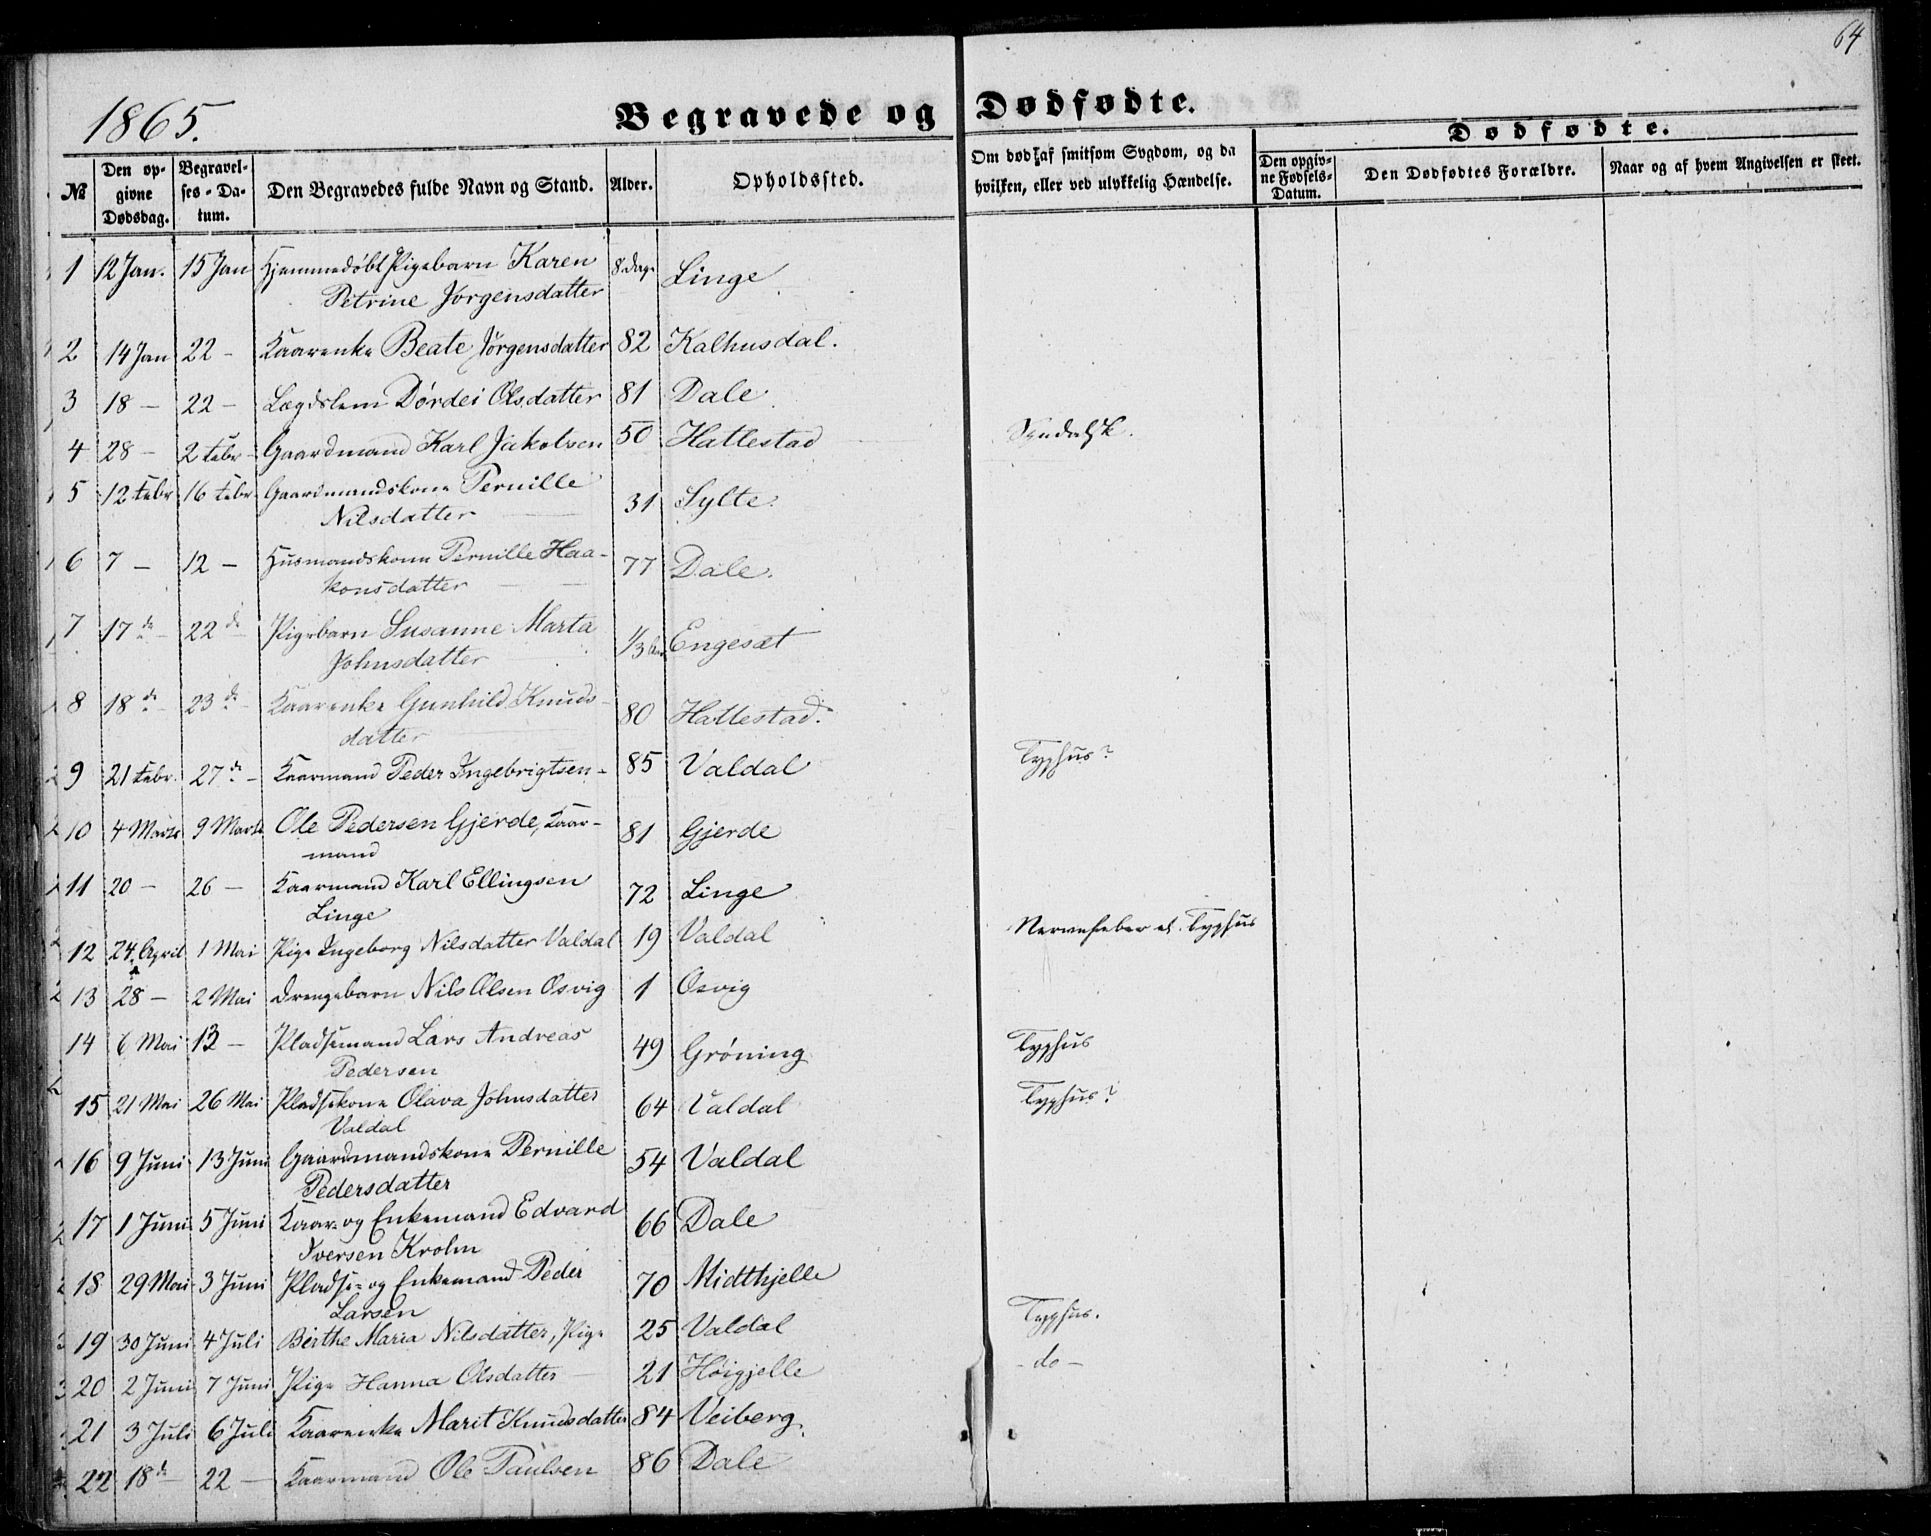 64
1865.
Begravede og Dødfødte.
Dødfødte.
№ Den opgivne Dødsdag. Begravelses-Datum. Den Begravedes fulde Navn og Stand. Alder. Opholdssted. Om død af smitsom Sygdom, og da hvilken, eller ved ulykkelig Hændelse. Den opgivne Fødsels-Datum. Den Dødfødtes Forældre. Naar og af hvem Angivelsen er skeet.
1 12 Jan. 15 Jan Hjemmedøbt Pigebarn Karen 8 Dage Linge
Petrine Jørgensdatter
2 14 Jan 22 - Kaarenke Beate Jørgensdatter 82 Kalhusdal.
3 18 - 22 - Lægdslem Dørdei Olsdatter 81 Dale
4 28 - 2 Febr - Gaardmand Karl Jakobsen 50 Hattestad
5 12 Febr 16 Febr Gaardmandskone Pernille 31 Sylte
Nilsdatter
6 7 - 12 - Husmandskone Pernille Haa- 77 Dale.
konsdatter
7 17 do 22 do Pigebarn Susanne Marta 1/3 Aar Engesæt
Johnsdatter
8 18 do 23 do Kaarenke Gunhild Knuds- 80 Hattestad.
datter
9 21 Febr. 27 do - Kaarmand Peder Ingebrigtsen - 85 Valdal Typhus?
10 4 Marts 9 Marts Ole Pedersen Gjerde, Kaar- 81 Gjerde
mand
11 20 - 26 - Kaarmand Karl Ellingsen 72 Linge
Linge
12 24 April 1 Mai Pige Ingeborg Nilsdatter Valdal 19 Valdal Nervefeber el. Typhus
13 28 - 2 Mai Drengebarn Nils Olsen Osvig 1 Osvig
14 6 Mai 13 - Pladsemand Lars Andreas 49 Grøning Typhus
Pedersen
15 21 Mai 26 Mai Pladsekone Olava Johnsdatter 64 Valdal Typhus?
Valdal
16 9 Juni 13 Juni Gaardmandskone Pernille 54 Valdal
Pedersdatter
17 1 Juni 5 Juni Kaar- og Enkemand Edvard 66 Dale
Iversen Krohn
18 29 Mai 3 Juni Pladse- og Enkemand Peder 70 Midthjelle
Larsen
19 30 Juni 4 Juli Birthe Maria Nilsdatter, Pige 25 Valdal Typhus.
20 2 Juni 7 Juni Pige Hanna Olsdatter 21 Høigjelle - do -
21 3 Juli 6 Juli Kaarenke Marit Knudsdatter 84 Veiberg
22 18 do 22 - Kaarmand Ole Paulsen 86 Dale